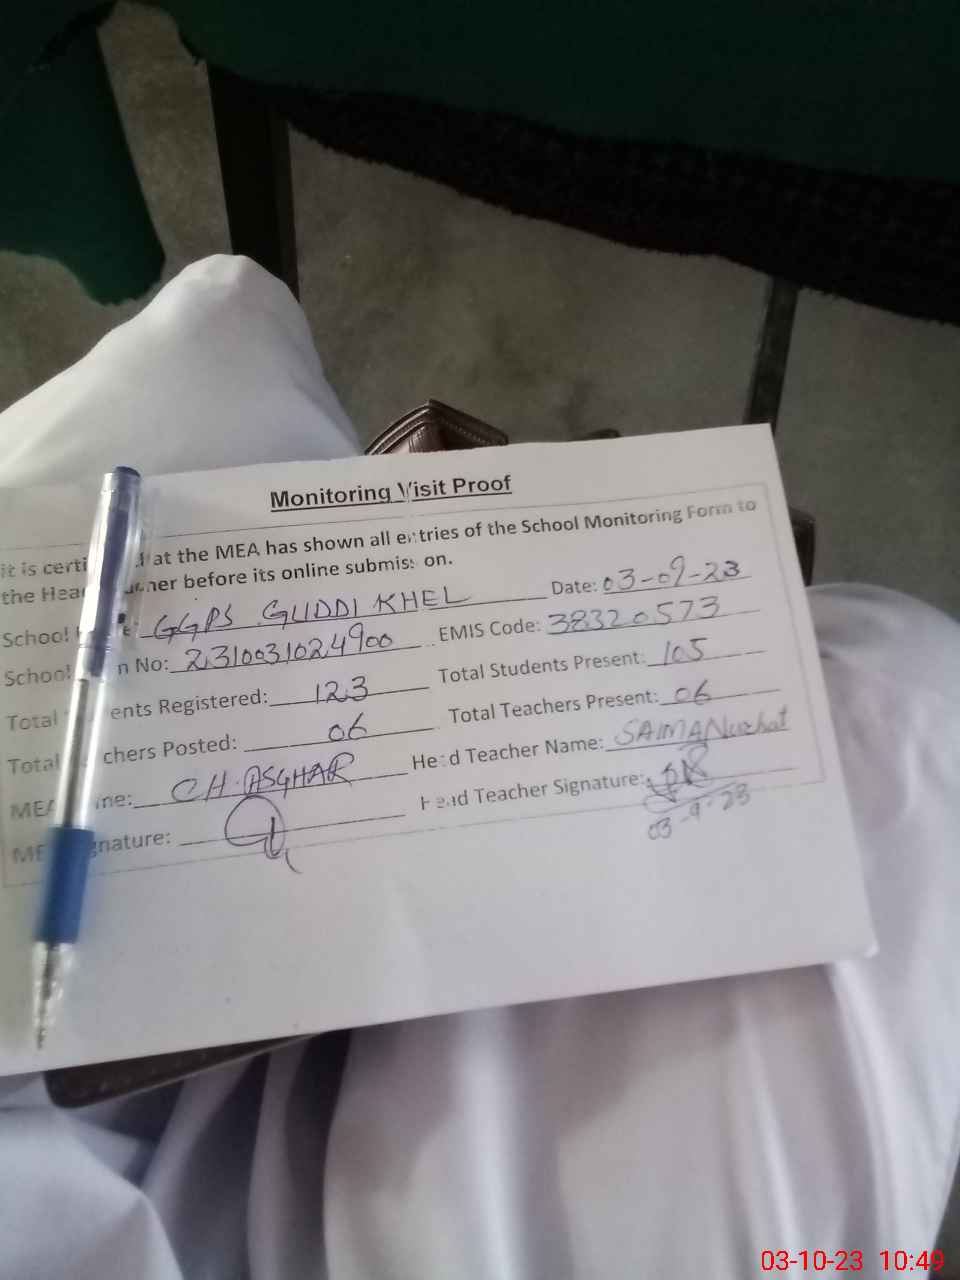 Monitoring Visit Proof
it is certi at the MEA has shown all entries of the School Monitoring Form to
the Hea her before its online submission.
School GGPS GUDDI KHEL Date: 03-09-23
School n No: 2310031024900 EMIS Code: 38320573
Total ents Registered: 123 Total Students Present: 105
Total chers Posted: 06 Total Teachers Present: 06
MEA me: CH. ASGHAR Head Teacher Name: SAIMA Nuzhat
ME gnature: Head Teacher Signature:
03-9-23
03-10-23 10:49